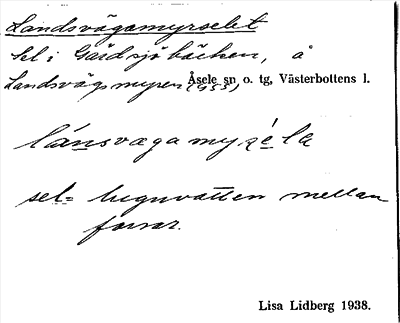 Landsvägamyrselet
Sel i Gårdsjöbäcken, å
Landsvägsmyren (G53) Åsele sn o. tg, Västerbottens l.
lánsvagamyrsela
sel= lugnvatten mellan
forsar.
Lisa Lidberg 1938.